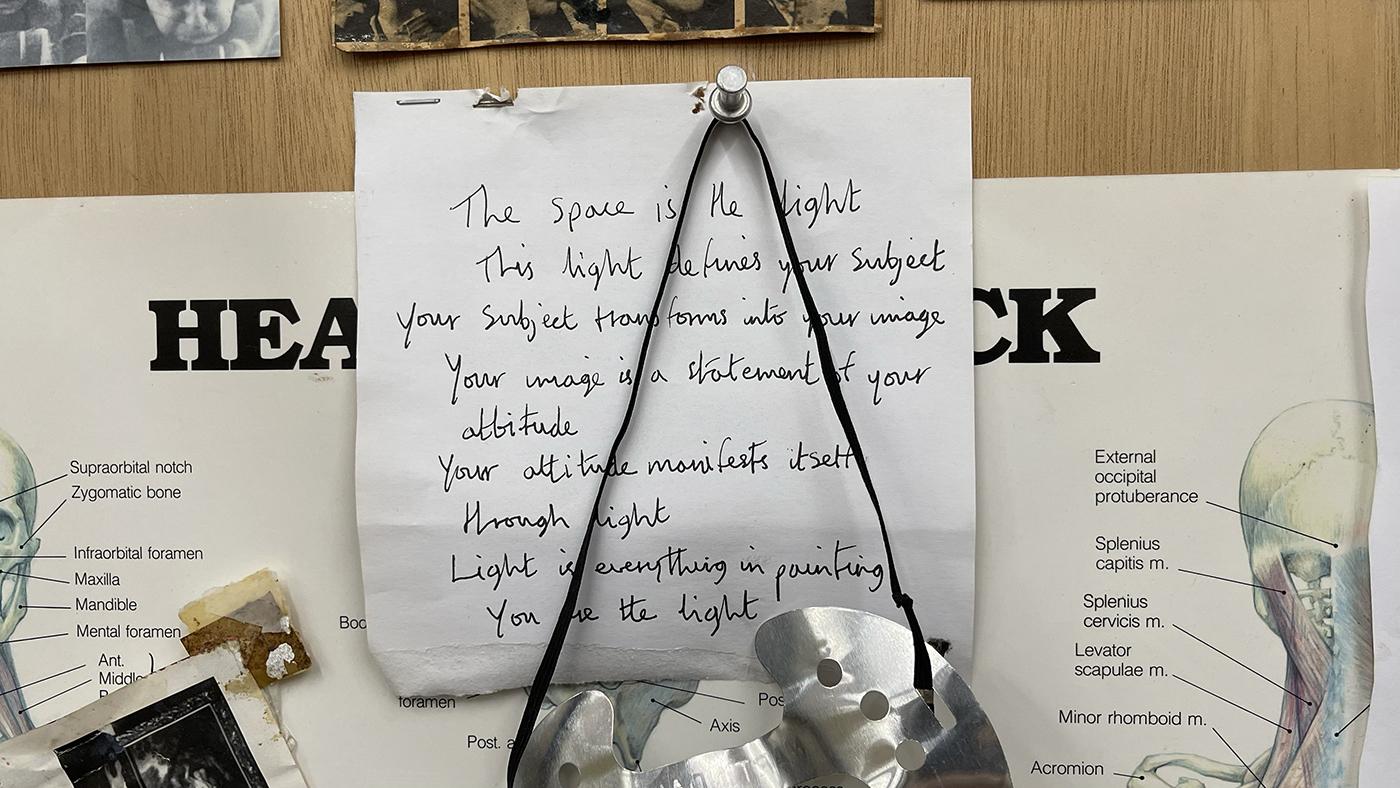 The space is the light
This light defines your subject
Your subject transforms into your image
Your image is a statement of your
attitude
Your attitude manifests itself
through light
Light is everything in painting
You are the light
HEA
CK
Supraorbital notch
Zygomatic bone
Infraorbital foramen
Maxilla
Mandible
Mental foramen
Ant.
Middle
foramen
Post. a
Pos
Axis
External
occipital
protuberance
Splenius
capitis m.
Splenius
cervicis m.
Levator
scapulae m.
Minor rhomboid m.
Acromion